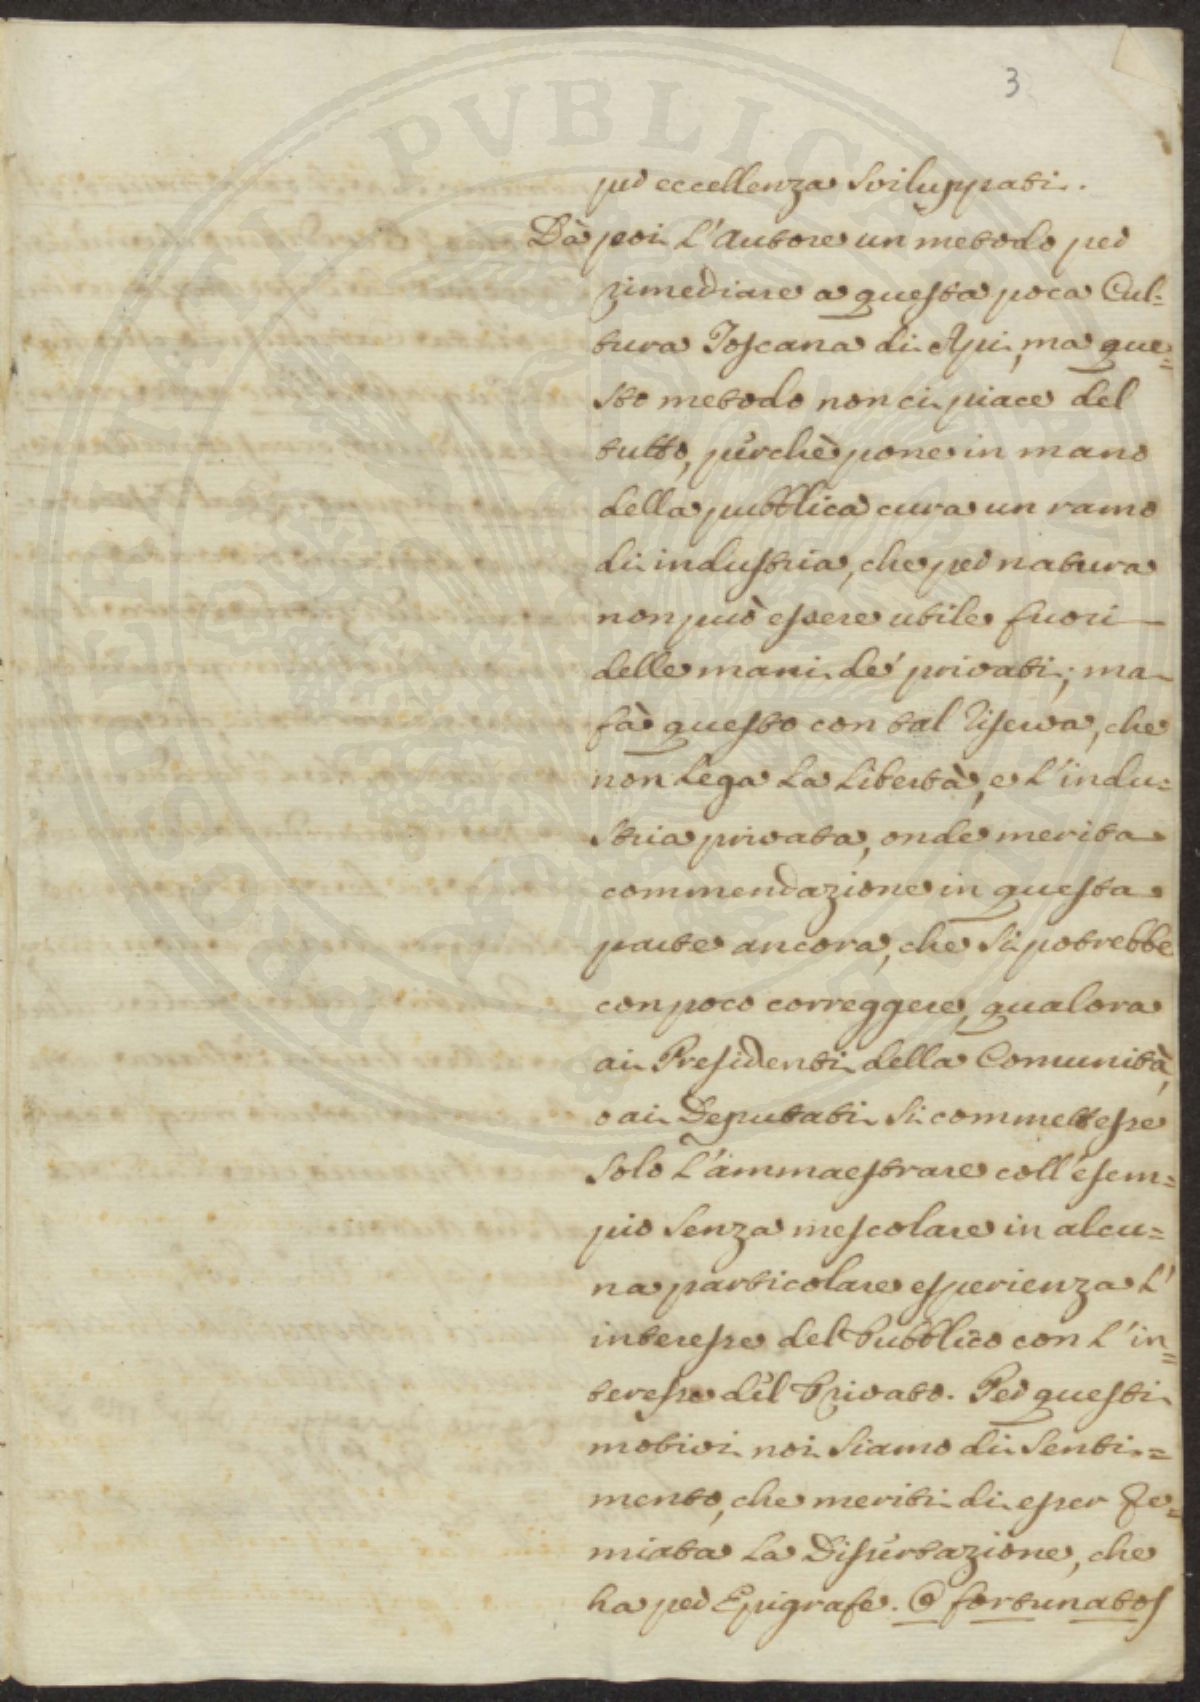 3
per eccellenza sviluppati.
Dà poi l'Autore un metodo per
rimediare a questa poca Cul=
tura Toscana di Api, ma que=
sto metodo non ci piace del
tutto, perchè pone in mano
della pubblica cura un ramo
di industria, che per natura
non può essere utile fuori
delle mani de' privati; ma
fà questo con tal riserva, che
non lega la libertà, e l'indu=
stria privata, onde merita
commendazione in questa
parte ancora, che si potrebbe
con poco correggere, qualora
ai Presidenti della Comunità,
o ai Deputati si commettesse
solo l'ammaestrare coll'esem=
pio senza mescolare in alcu=
na particolare esperienza l'
interesse del Pubblico con l'in=
teresse del Privato. Per questi
motivi noi siamo di senti=
mento, che meriti di esser Pre=
miata la Dissertazione, che
ha per Epigrafe. O fortunatos